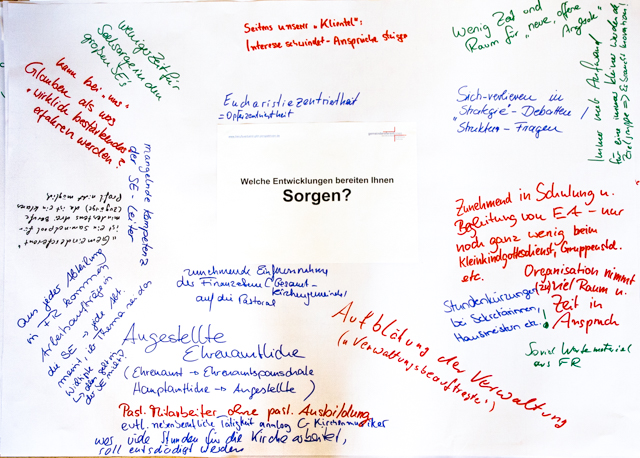 weniger Zeit für
Seelsorge in den
großen SE's
Seitens unserer "Klientel":
Interesse schwindet - Ansprüche steigen
Wenig Zeit und
Raum für "neue, offene
Angebote"
Immer mehr Aufwand
für eine immer kleiner werdende
Kann bei "uns"
Glauben als was
"wirklich bestärkendes"
erfahren werden?
Eucharistiezentriertheit
= Opferzentriertheit
Sich-verlieren in
"Strategie"-Debatten /
"Struktur"-Fragen
mangelnde Kompetenz
der SE-Leiter
Welche Entwicklungen bereiten Ihnen
Sorgen?
"Gemeindereferent"
ist ein Sammelpool für
mindestens drei Berufe
(Zugänge) da ist ein klares
Profil nicht möglich
Zunehmend in Schulung u.
Begleitung von EA - nur
noch ganz wenig beim
Kleinkindgottesdienst, Gruppenstd.
etc.
Organisation nimmt
(zu) viel Raum u.
Zeit in
Anspruch
Stundenkürzungen
bei Sekretärinnen,
Hausmeistern etc.
zunehmende Einflussnahme
des Finanziellen (Gesamt-
kirchengemeinde)
auf die Pastoral
Aus jeder Abteilung
in FR kommen
Arbeitsaufträge in
die SE → jede Abt.
meint, ihr Thema sei das
Wichtigste
Angestellte
Ehrenamtliche
(Ehrenamt → Ehrenamtspauschale
Hauptamtliche → Angestellte)
Aufblähung der Verwaltung
(→ Verwaltungsbeauftragte!)
soviel Werbematerial
aus FR
Past. Mitarbeiter ohne past. Ausbildung
evtl. nebenberufliche Tätigkeit analog C-Kirchenmusiker
wer viele Stunden für die Kirche arbeitet,
soll entschädigt werden